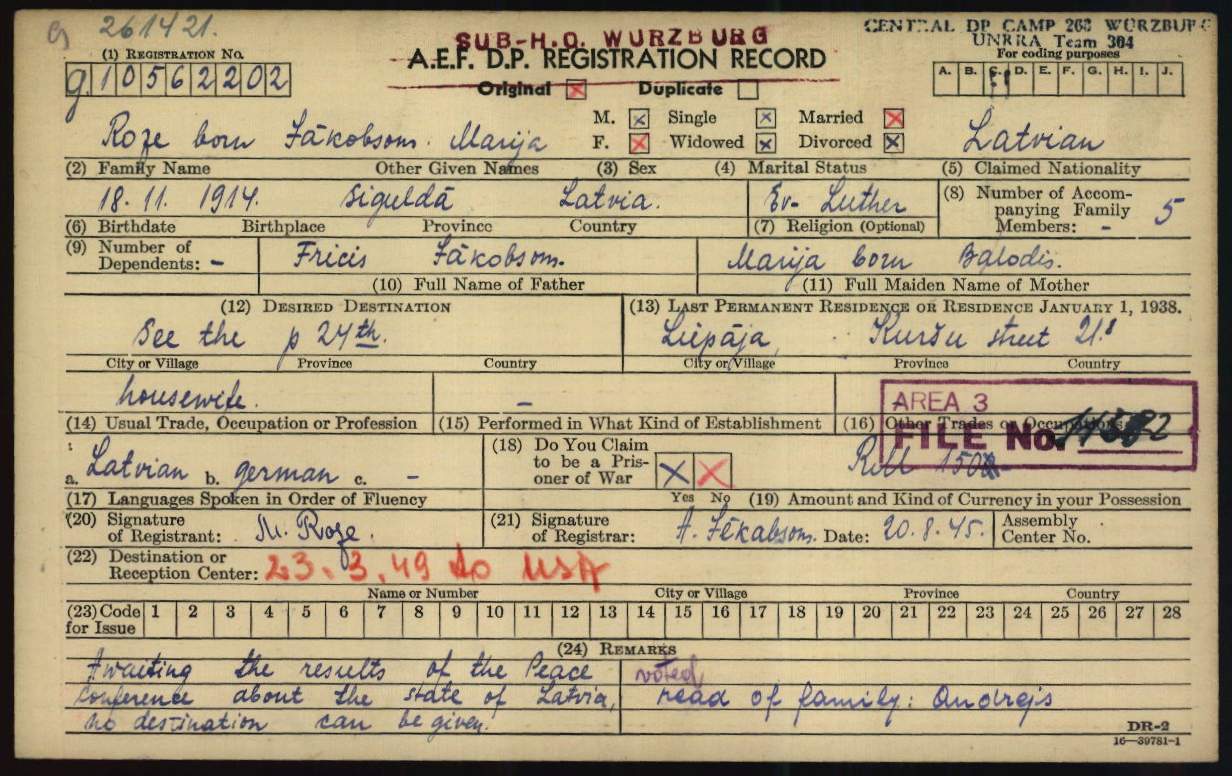 261421.
CENTRAL DP CAMP 268 WÜRZBURG
UNRRA Team 304
SUB-H.Q. WURZBURG
(1) REGISTRATION No.
A.E.F. D.P. REGISTRATION RECORD
For coding purposes
g10562202
Original Duplicate
A. B. C. D. E. F. G. H. I. J.
M. Single Married
F. Widowed Divorced
Roze born Jākobsom. Marija Latvian
(2) Family Name Other Given Names (3) Sex (4) Marital Status (5) Claimed Nationality
18. 11. 1914. Siguldā Latvia. Ev. Luther
(8) Number of Accompanying Family Members: - 5
(6) Birthdate Birthplace Province Country (7) Religion (Optional)
(9) Number of Dependents: - Fricis Jākobsom. Marija born Balodis.
(10) Full Name of Father (11) Full Maiden Name of Mother
(12) DESIRED DESTINATION (13) LAST PERMANENT RESIDENCE OR RESIDENCE JANUARY 1, 1938.
See the p 24th. Liepāja, Kuršu street 21.
City or Village Province Country City or Village Province Country
housewife. -
AREA 3
(14) Usual Trade, Occupation or Profession (15) Performed in What Kind of Establishment (16) Other Trades or Occupations
FILE No.
a. Latvian b. german c. -
(18) Do You Claim to be a Prisoner of War
Yes No
(17) Languages Spoken in Order of Fluency (19) Amount and Kind of Currency in your Possession
(20) Signature of Registrant: M. Roze.
(21) Signature of Registrar: Date: 20.8.45.
Assembly Center No.
(22) Destination or Reception Center: 23.3.49 to USA
Name or Number City or Village Province Country
(23) Code for Issue 1 2 3 4 5 6 7 8 9 10 11 12 13 14 15 16 17 18 19 20 21 22 23 24 25 26 27 28
(24) REMARKS
Awaiting the results of the Peace voted
Conference about the state of Latvia, head of family: Andrejs
no destination can be given.
DR-2
16—39781-1